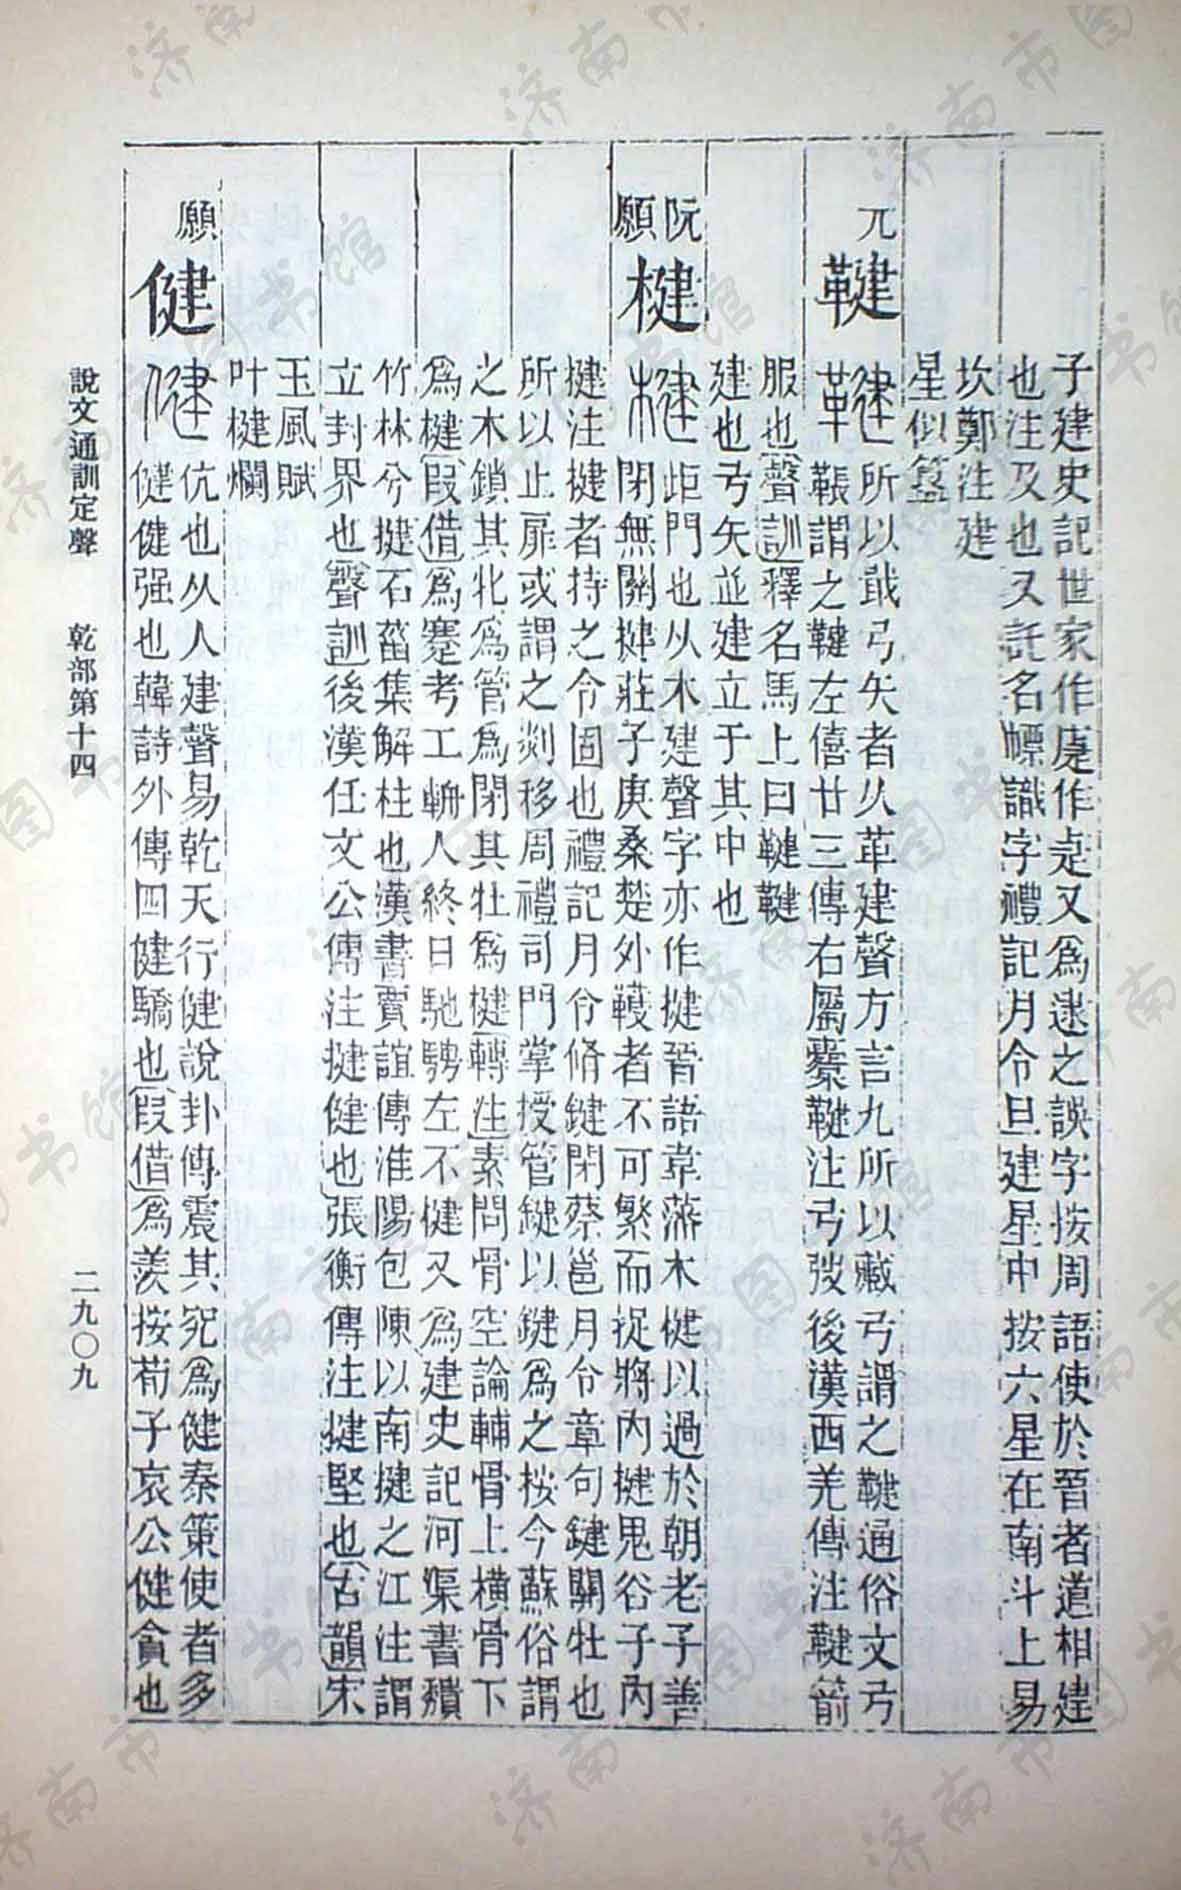 子建史記世家作疌作疌又爲逮之誤字按周語使於晉者道相建
也注及也又託名幖識字禮記月令旦建星中按六星在南斗上易
坎鄭注建
星似簋
元
鞬
所以戢弓矢者从革建聲方言九所以藏弓謂之鞬通俗文弓
韔謂之鞬左僖廿三傳右屬櫜鞬注弓弢後漢西羌傳注鞬箭
服也聲訓釋名馬上曰鞬鞬
建也弓矢並建立于其中也
阮
願
楗
歫門也从木建聲字亦作揵晉語韋藩木健以過於朝老子善
閉無關揵莊子庚桑楚外韄者不可繁而捉將內揵鬼谷子內
揵注揵者持之令固也禮記月令脩鍵閉蔡邕月令章句鍵關牡也
所以止扉或謂之剡移周禮司門掌授管鍵以鍵爲之按今蘇俗謂
之木鎖其牝爲管爲閉其牡爲楗轉注素問骨空論輔骨上橫骨下
爲楗叚借爲蹇考工輈人終日馳騁左不楗又爲建史記河渠書穨
竹林兮揵石菑集解柱也漢書賈誼傳淮陽包陳以南揵之江注謂
立封界也聲訓後漢任文公傳注揵健也張衡傳注揵堅也古韻宋
玉風賦
叶楗爛
願
健
伉也从人建聲易乾天行健說卦傳震其究爲健秦策使者多
健健强也韓詩外傳四健驕也叚借爲羨按荀子哀公健貪也
說文通訓定聲　乾部第十四　二九〇九
济南市图书馆